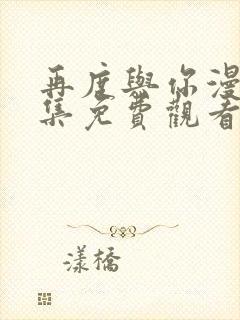 再度與你漫
集免費觀看
漾橋